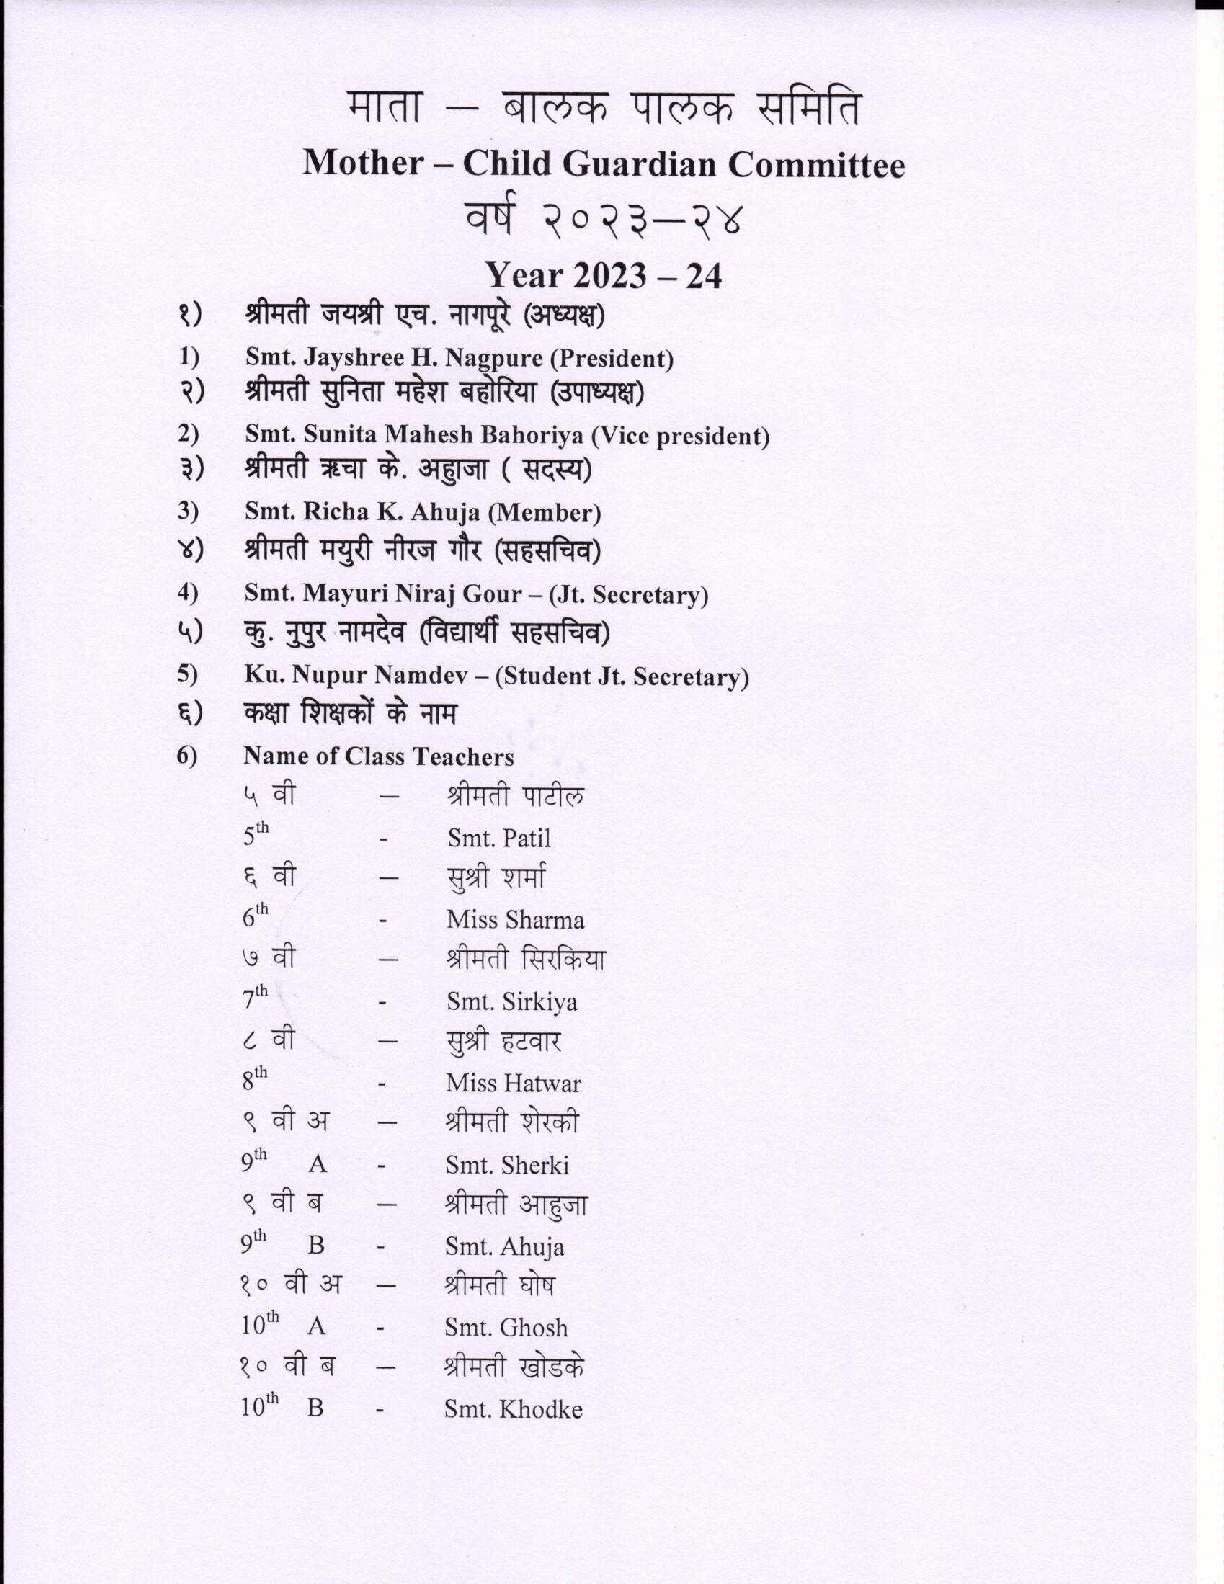 माता – बालक पालक समिति
Mother – Child Guardian Committee
वर्ष २०२३–२४
Year 2023 – 24
१) श्रीमती जयश्री एच. नागपूरे (अध्यक्ष)
1) Smt. Jayshree H. Nagpure (President)
२) श्रीमती सुनिता महेश बहोरिया (उपाध्यक्ष)
2) Smt. Sunita Mahesh Bahoriya (Vice president)
३) श्रीमती ऋचा के. अहुाजा ( सदस्य)
3) Smt. Richa K. Ahuja (Member)
४) श्रीमती मयुरी नीरज गौर (सहसचिव)
4) Smt. Mayuri Niraj Gour – (Jt. Secretary)
५) कु. नुपुर नामदेव (विद्यार्थी सहसचिव)
5) Ku. Nupur Namdev – (Student Jt. Secretary)
६) कक्षा शिक्षकों के नाम
6) Name of Class Teachers
५ वी – श्रीमती पाटील
5th - Smt. Patil
६ वी – सुश्री शर्मा
6th - Miss Sharma
७ वी – श्रीमती सिरकिया
7th - Smt. Sirkiya
८ वी – सुश्री हटवार
8th - Miss Hatwar
९ वी अ – श्रीमती शेरकी
9th A - Smt. Sherki
९ वी ब – श्रीमती आहुजा
9th B - Smt. Ahuja
१० वी अ – श्रीमती घोष
10th A - Smt. Ghosh
१० वी ब – श्रीमती खोडके
10th B - Smt. Khodke